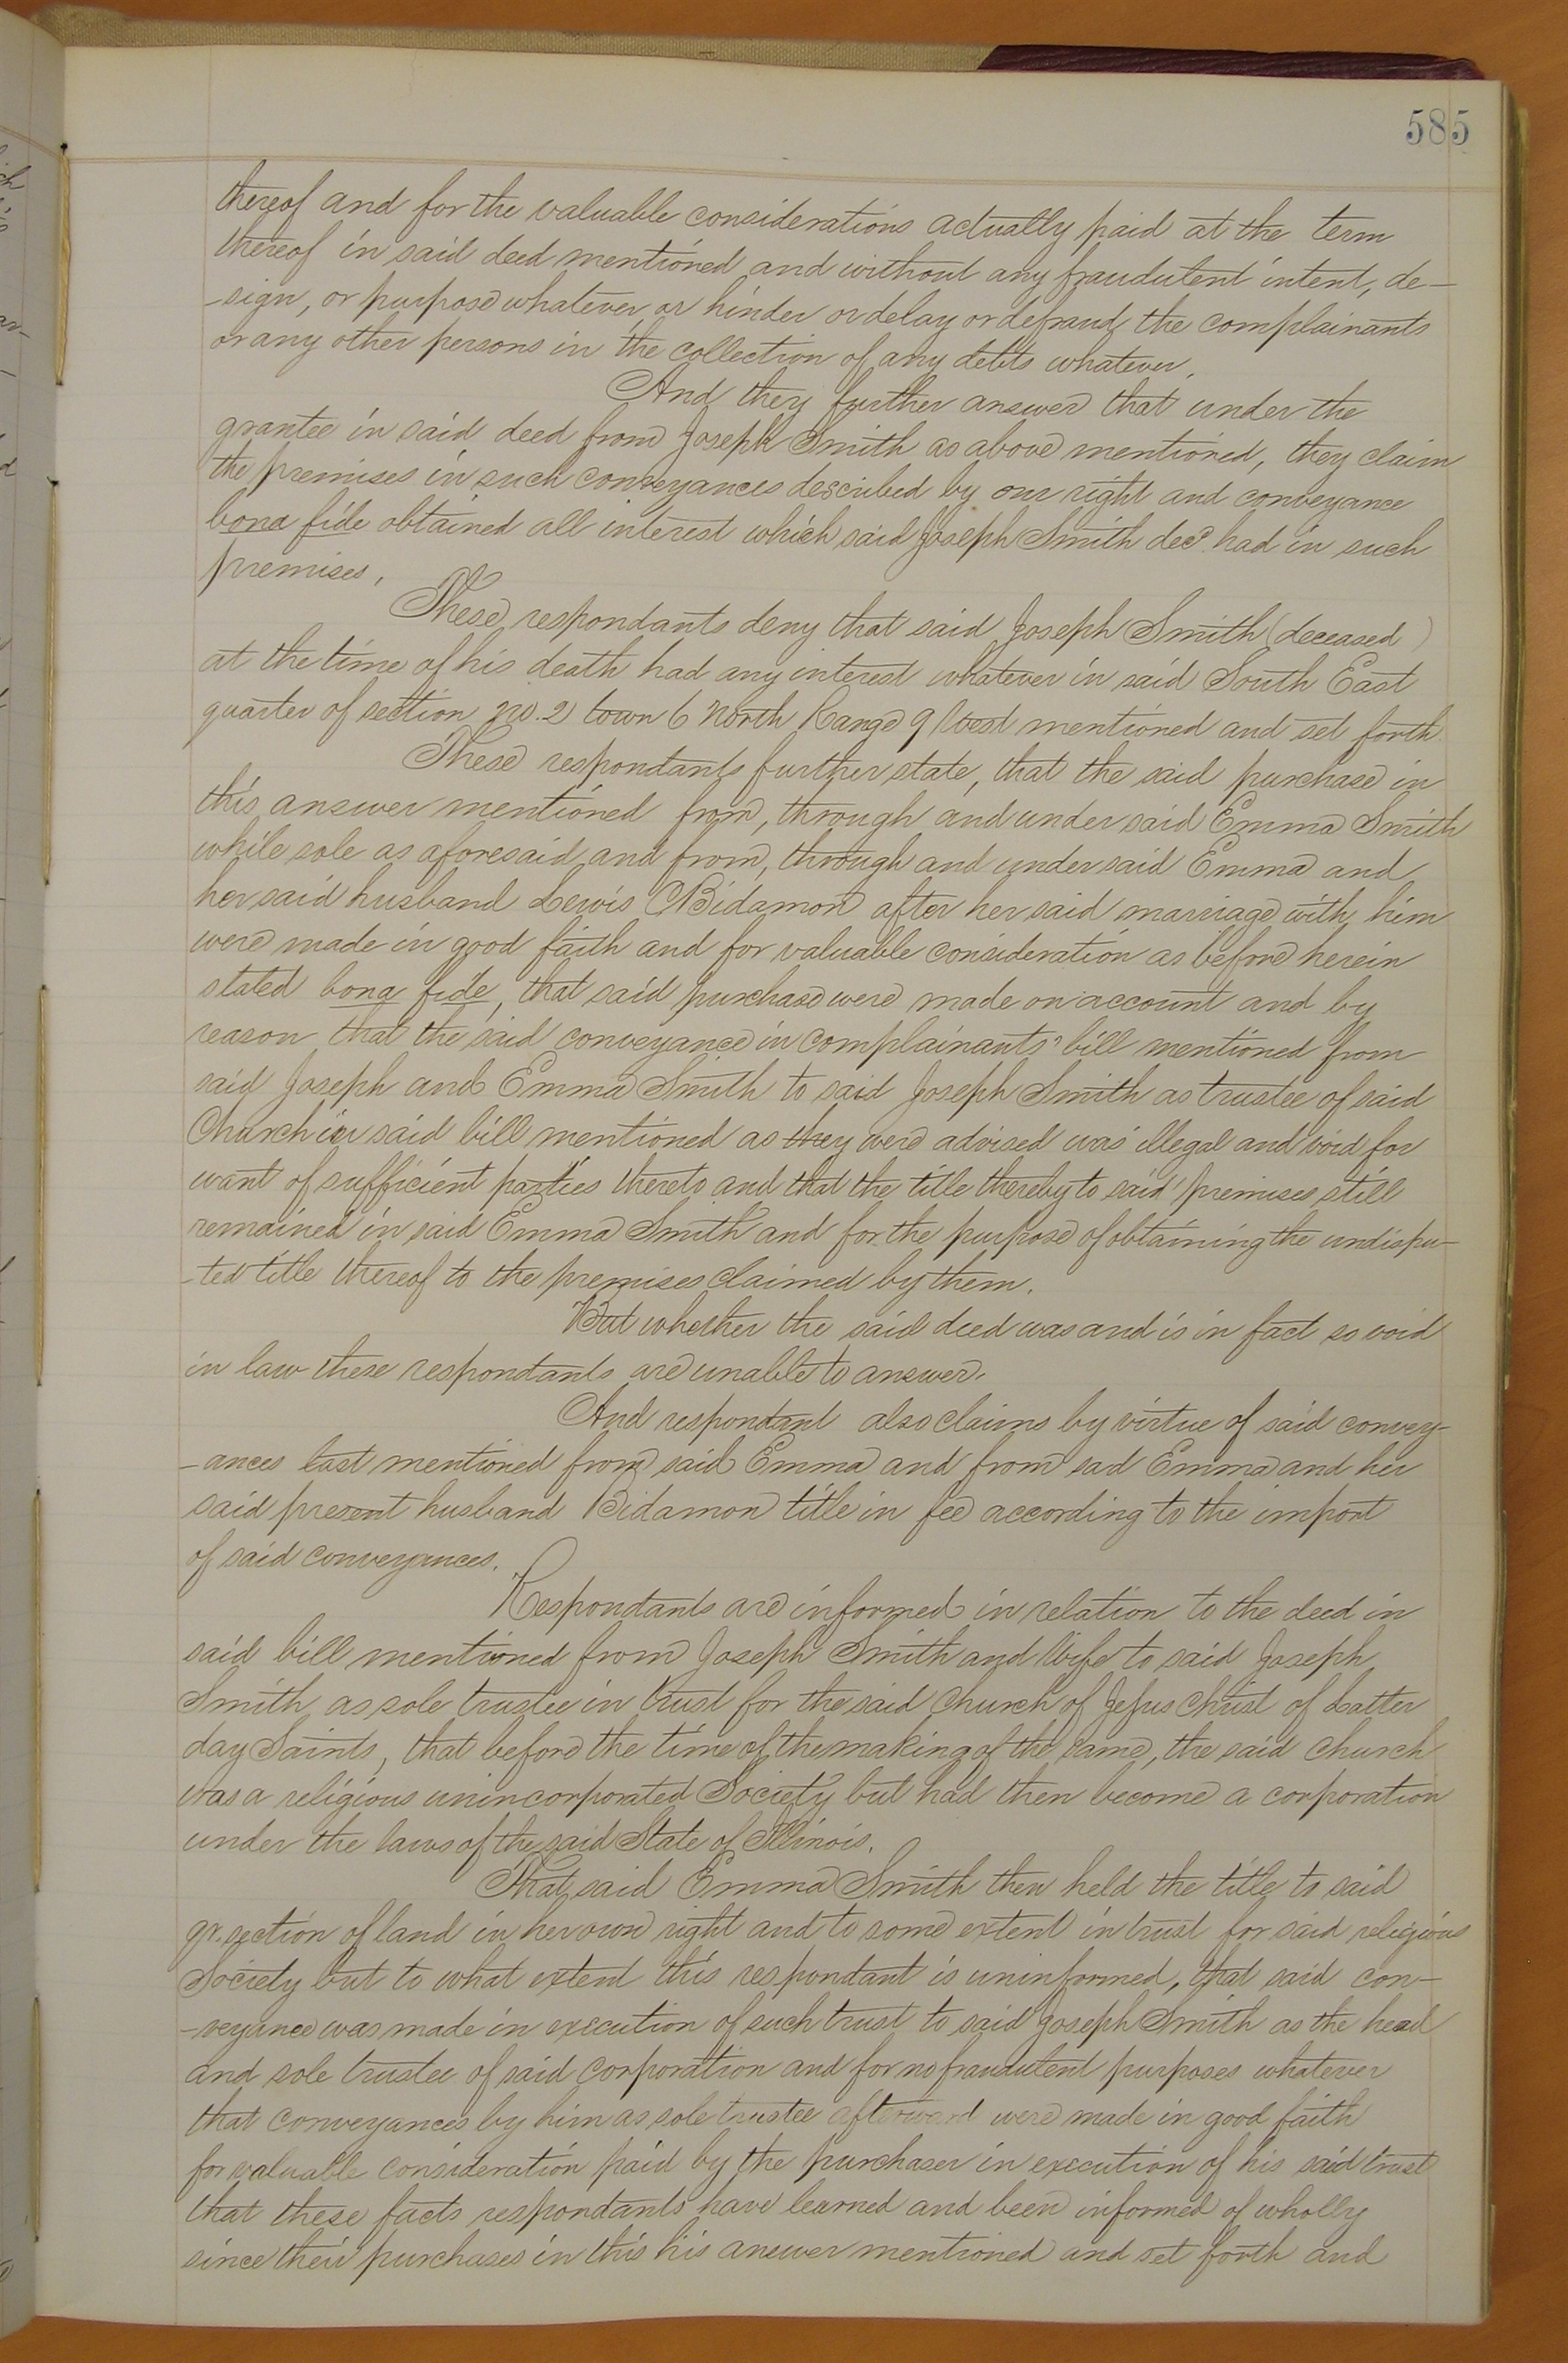 585
thereof and for the valuable considerations actually paid at the term
thereof in said deed mentioned and without any fraudulent intent, de-
-sign, or purpose whatever, or hinder or delay or defraud the complainants
or any other persons in the collection of any debts whatever.
And they further answer that under the
grantee in said deed from Joseph Smith as above mentioned, they claim
the premises in such conveyances described by our right and conveyance
bona fide obtained all interest which said Joseph Smith decd had in such
premises.
These respondants deny that said Joseph Smith (deceased)
at the time of his death had any interest whatever in said South East
quarter of section no. 2 town 6 North Range 9 West mentioned and set forth
These respondants further state, that the said purchase in
this answer mentioned from, through and under said Emma Smith
while sole as aforesaid and from, through and under said Emma and
her said husband Lewis C Bidamon after her said marriage with him
were made in good faith and for valuable consideration as before herein
stated bona fide, that said purchase were made on account and by
reason that the said conveyance in complainants' bill mentioned from
said Joseph and Emma Smith to said Joseph Smith as trustee of said
Church in said bill mentioned as they were advised was illegal and void for
want of sufficient parties thereto and that the title thereby to said premises still
remained in said Emma Smith and for the purpose of obtaining the undispu-
-ted title thereof to the premises claimed by them.
But whether the said deed was and is in fact so void
in law these respondants are unable to answer.
And respondant also claims by virtue of said convey-
-ances last mentioned from said Emma and from sad Emma and her
said present husband Bidamon title in fee according to the import
of said conveyances.
Respondants are informed in relation to the deed in
said bill mentioned from Joseph Smith and Wife to said Joseph
Smith as sole trustee in trust for the said Church of Jesus Christ of Latter
day Saints, that before the time of the making of the same, the said church
was a religious unincorporated Society but had then become a corporation
under the laws of the said State of Illinois.
That said Emma Smith then held the title to said
qr. section of land in her own right and to some extent in trust for said religious
Society but to what extent this respondant is uninformed, that said con-
-veyance was made in execution of such trust to said Joseph Smith as the head
and sole trustee of said corporation and for no fraudulent purposes whatever
that conveyances by him as sole trustee afterward were made in good faith
for valuable consideration paid by the purchaser in execution of his said trust
that these facts respondants have learned and been informed of wholly
since their purchases in this his answer mentioned and set forth and